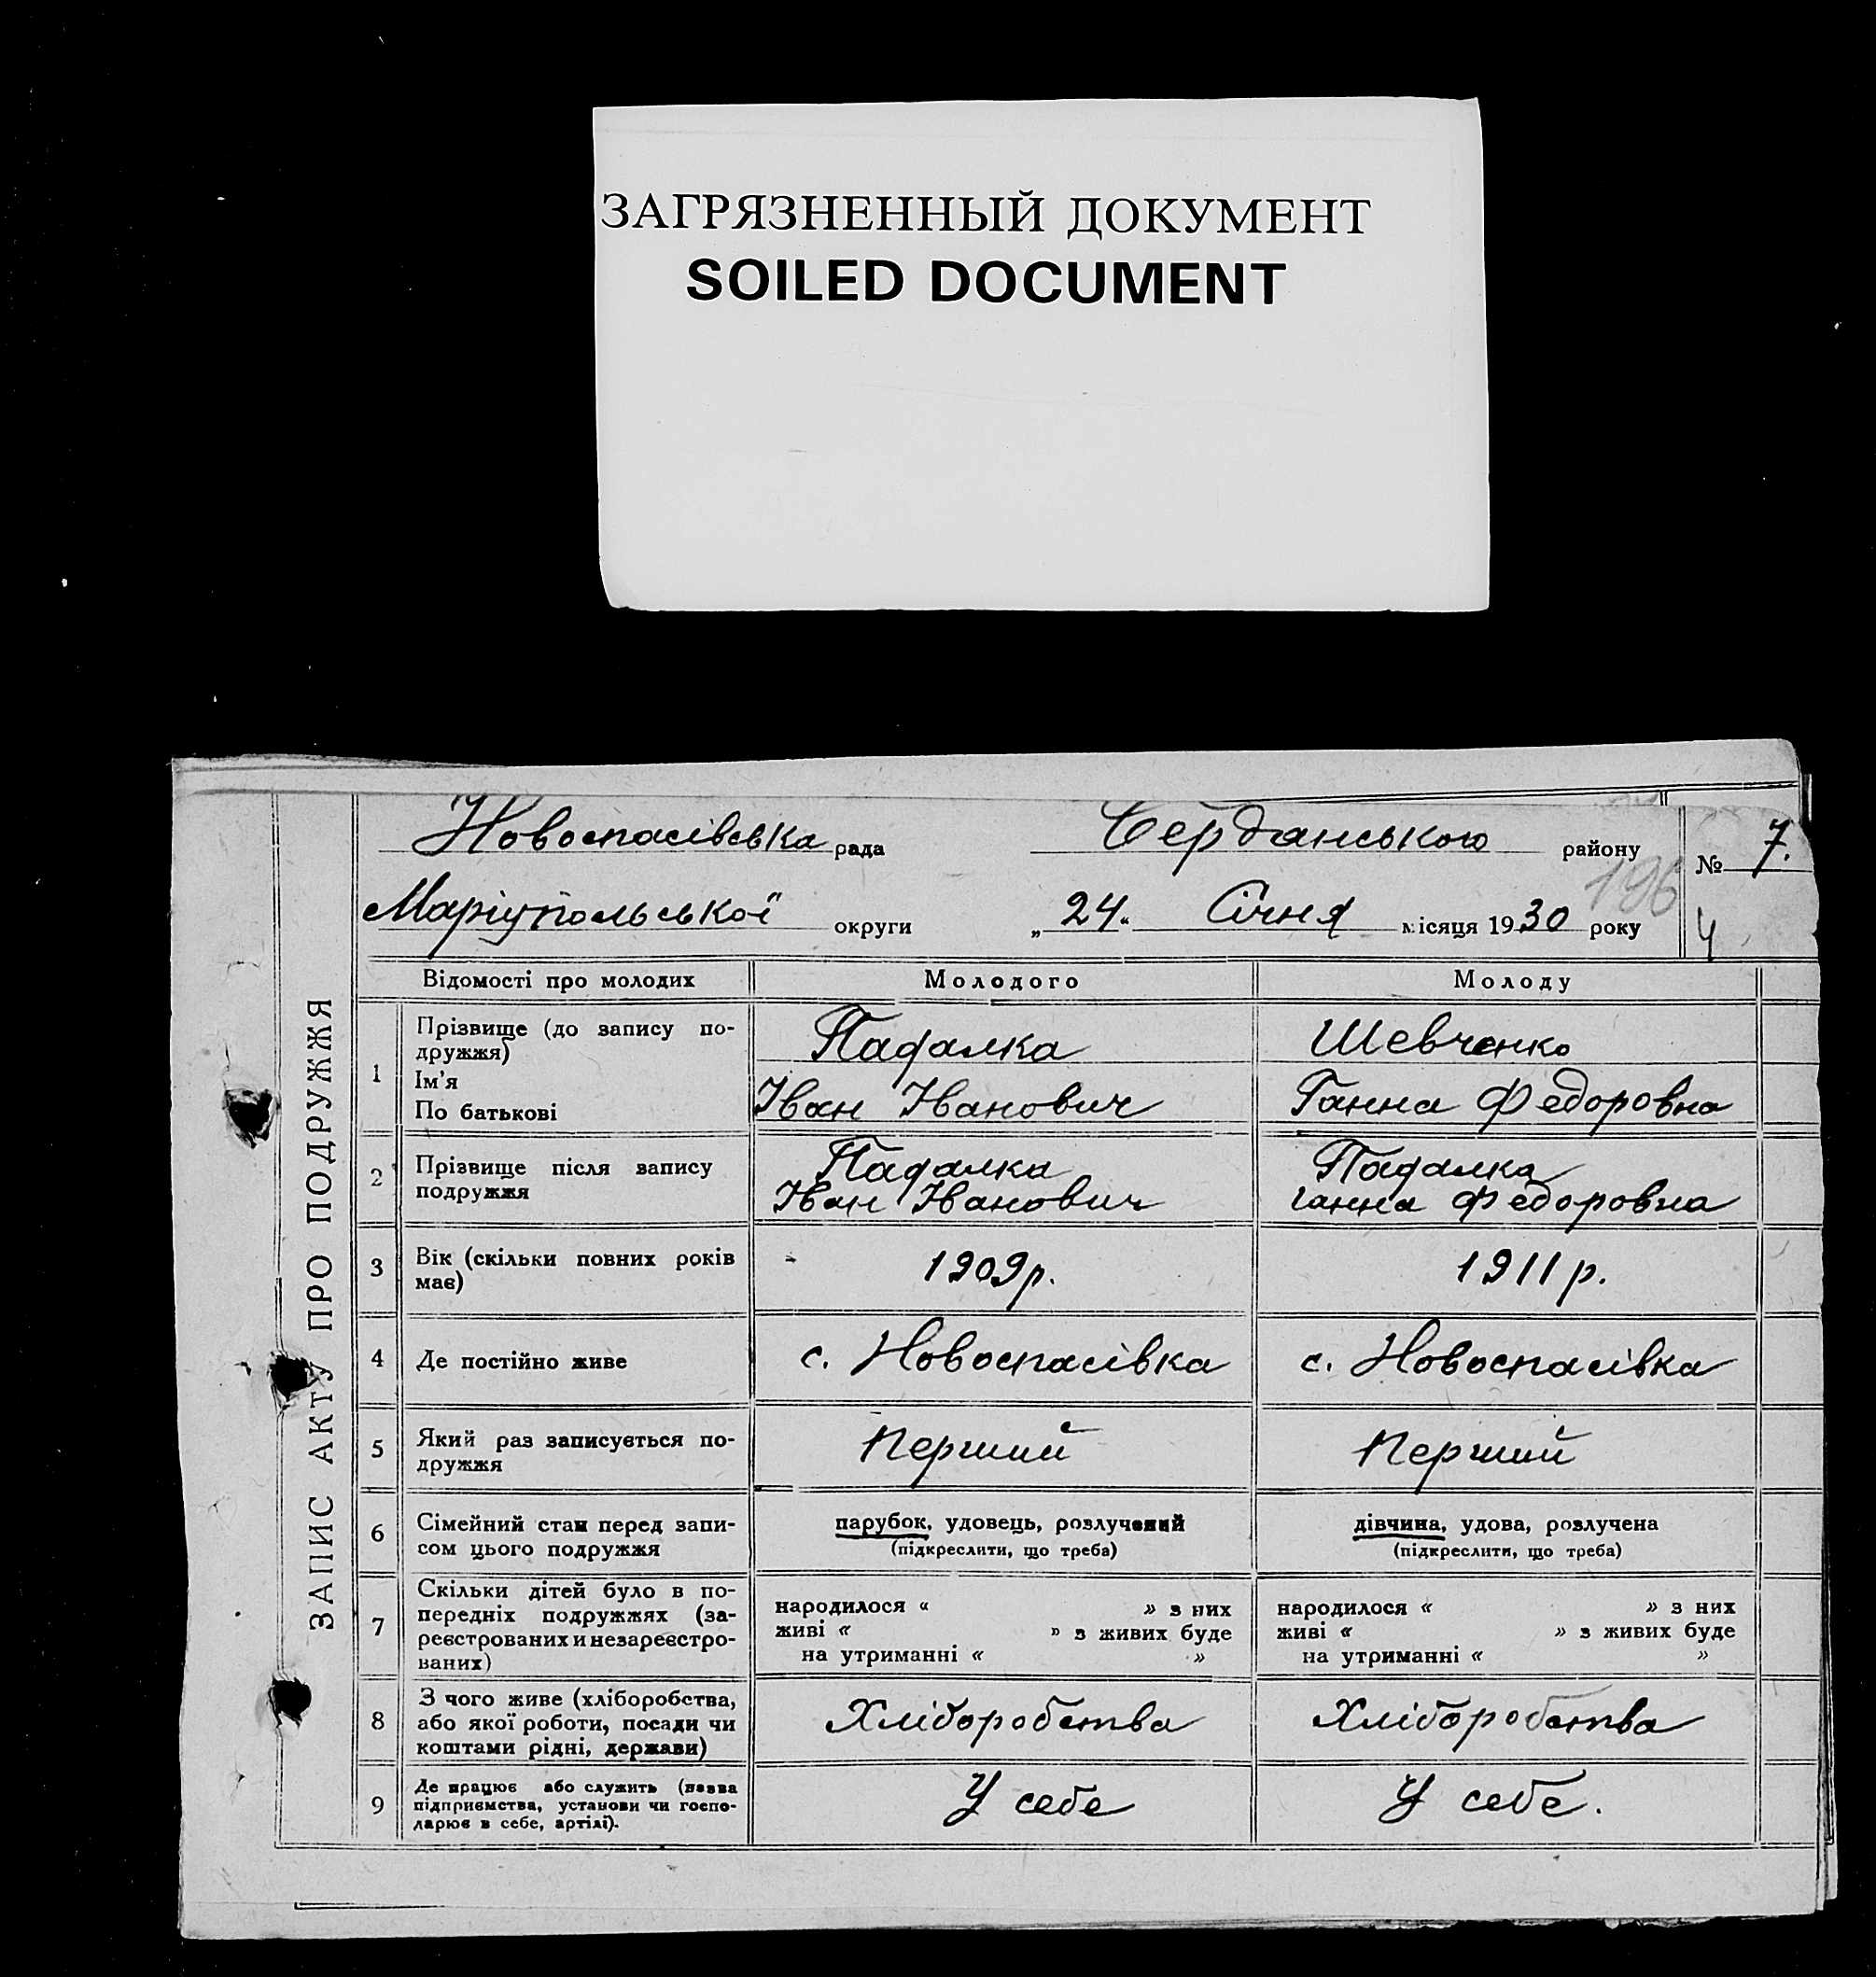 ЗАГРЯЗНЕННЫЙ ДОКУМЕНТ
SOILED DOCUMENT
ЗАПИС АКТУ ПРО ПОДРУЖЖЯ
Новоспасівська рада Бердянського району № 7.
196
Маріупольської округи „24“ Січня місяця 1930 року 4
Відомості про молодих Молодого Молоду
1 Прізвище (до запису по- Падалка Шевченко
дружжя)
Ім'я Іван Іванович Ганна Федоровна
По батькові
2 Прізвище після запису Падалка Падалка
подружжя Іван Іванович Ганна Федоровна
3 Вік (скільки повних років 1909р. 1911р.
має)
4 Де постійно живе с. Новоспасівка с. Новоспасівка
5 Який раз записується по- Перший Перший
дружжя
6 Сімейний стан перед запи- парубок, удовець, розлучений дівчина, удова, розлучена
сом цього подружжя (підкреслити, що треба) (підкреслити, що треба)
7 Скільки дітей було в по- народилося « » з них народилося « » з них
передніх подружжях (за- живі « » з живих буде живі « » з живих буде
реєстрованих и незареєстро- на утриманні « » на утриманні « »
ваних)
8 З чого живе (хліборобства, Хліборобства Хліборобства
або якої роботи, посади чи
коштами рідні, держави)
9 Де працює або служить (назва У себе У себе.
підприємства, установи чи госпо-
дарює в себе, артілі).